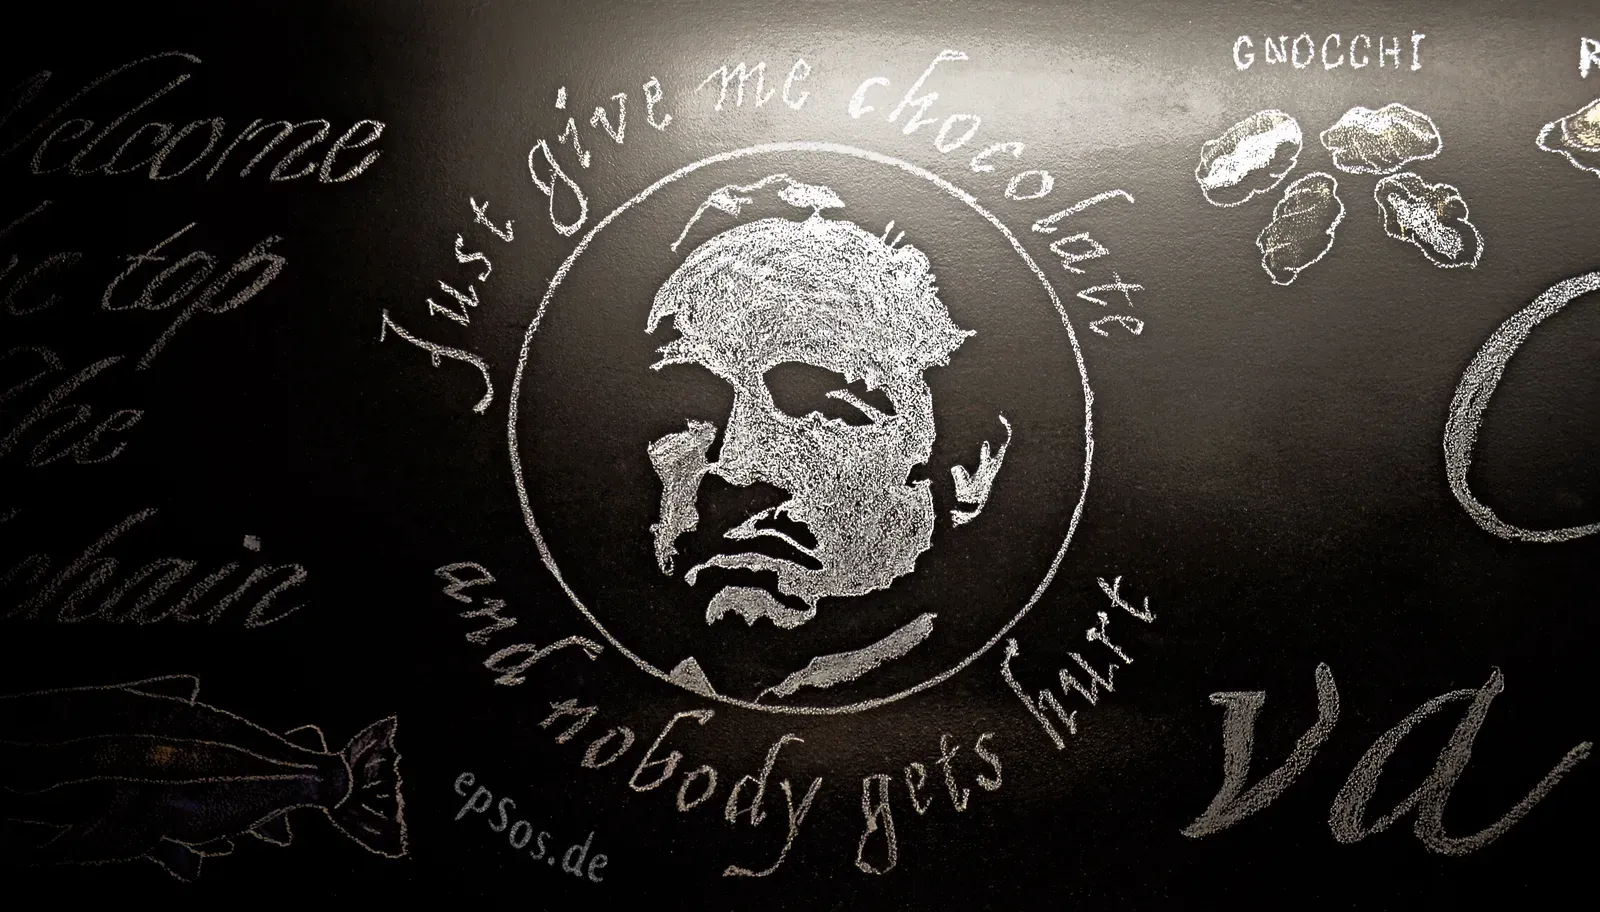 Welcome
top
the
chain
Just give me chocolate
and nobody gets hurt
GNOCCHI
va
epsos.de